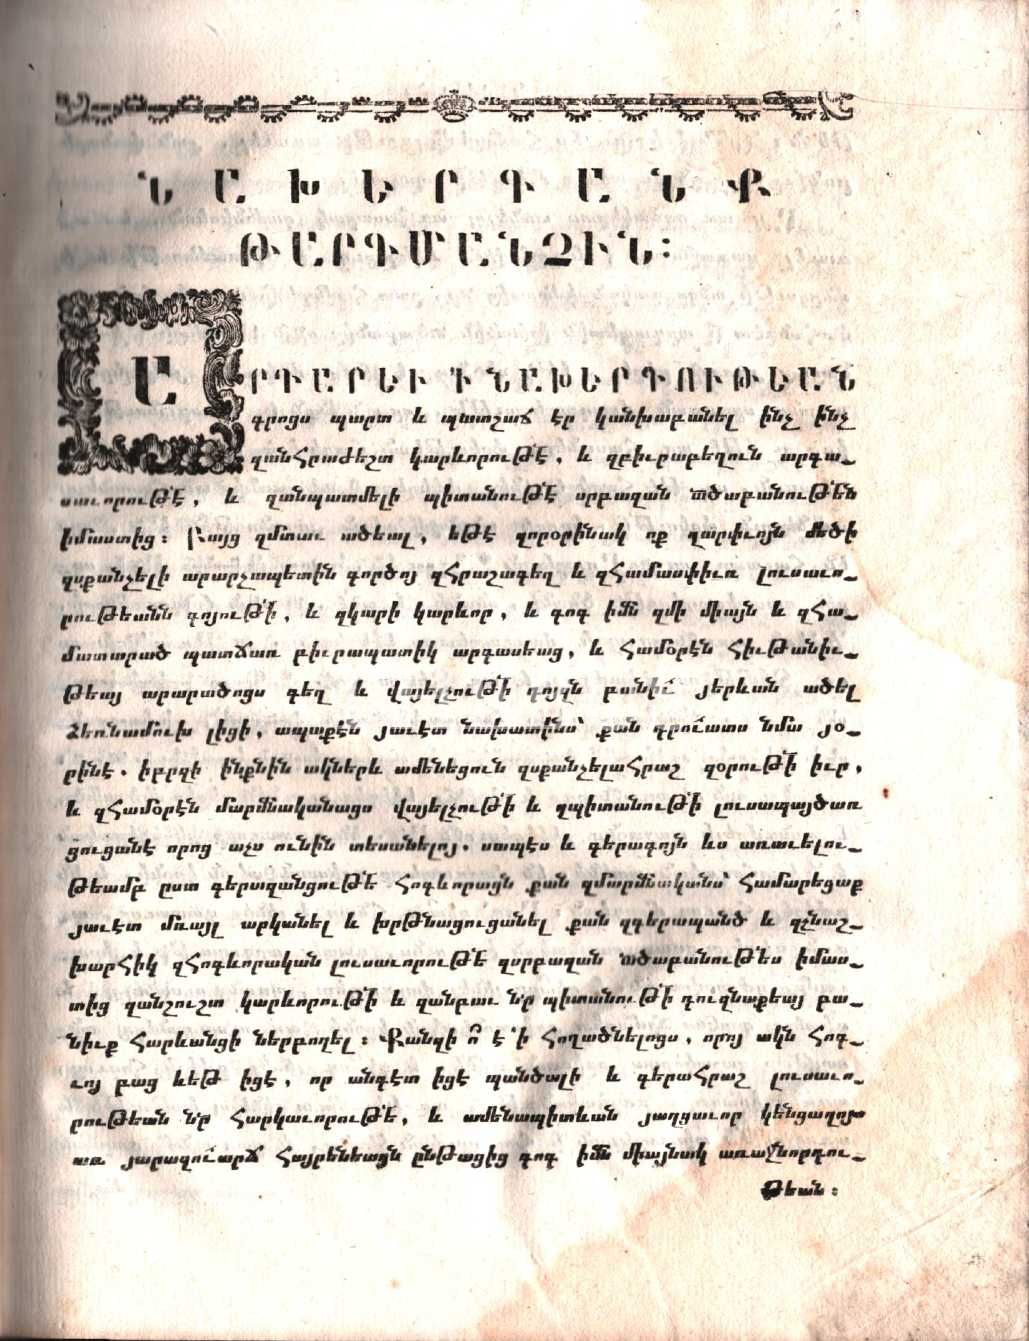 ՆԱԽԵՐԳԱՆՔ
ԹԱՐԳՄԱՆՉԻՆ։
ԱՐԴԱՐԵՒ Ի ՆԱԽԵՐԳՈՒԹԵԱՆ
գրոցս պարտ և պատշաճ էր կանխաբանել ինչ ինչ
զանհրաժեշտ կարևորութէ, և զբիւրաբեղուն արգա֊
սաւորութէ, և զանպատմելի պիտանութէ սրբազան ածաբանութեն
իմաստից։ Բայց զմտաւ ածեալ, եթէ զորօրինակ ոք զարփւոյն մեծի
զսքանչելի արարչապետին գործոյ զհրաշագեղ և զհամասփիւռ լուսաւո֊
րութեանն գոյութի, և զկարի կարևոր, և գոգ իմն զմի միայն և զհա֊
մատարած պատճառ բիւրապատիկ արգասեաց, և համօրէն հիւթանիւ֊
թեայ արարածոցս գեղ և վայելչութի դոյզն բանիւ յերևան ածել
ձեռնամուխ լիցի, ապաքէն յաւէտ նախատինս՝ քան գրուատս նմա յօ֊
րինէ. իբրզի ինքնին ակներև ամենեցուն զսքանչելահրաշ զօրութի իւր,
և զհամօրէն մարմնականացս վայելչութի և զպիտանութի լուսապայծառ
ցուցանէ որոց աչս ունին տեսանելոյ. սապէս և գերագոյն ևս առաւելու֊
թեամբ ըստ գերազանցութե հոգևորացն քան զմարմնականս՝ համարեցաք
յաւէտ մռայլ արկանել և խրթնացուցանել քան զգերապանծ և զչնաշ֊
խարհիկ զհոգևորական լուսաւորութե զսրբազան ածաբանութես իմաս֊
տից զանշուշտ կարևորութի և զանբաւ նր պիտանութի դուզնաքեայ բա֊
նիւք հարևանցի ներբողել։ Քանզի ո՞ է ՛ի հողածնելոցս, որոյ ակն հոգ֊
ւոյ բաց ևեթ իցէ, որ անգէտ իցէ պանծալի և գերահրաշ լուսաւո֊
րութեան նր հարկաւորութե, և ամենապիտևան յաղցաւոր կենցաղոյս
առ յարազուարճ հայրենեացն ընթացից գոգ իմն միայնակ առաջնորդու֊
թեան։